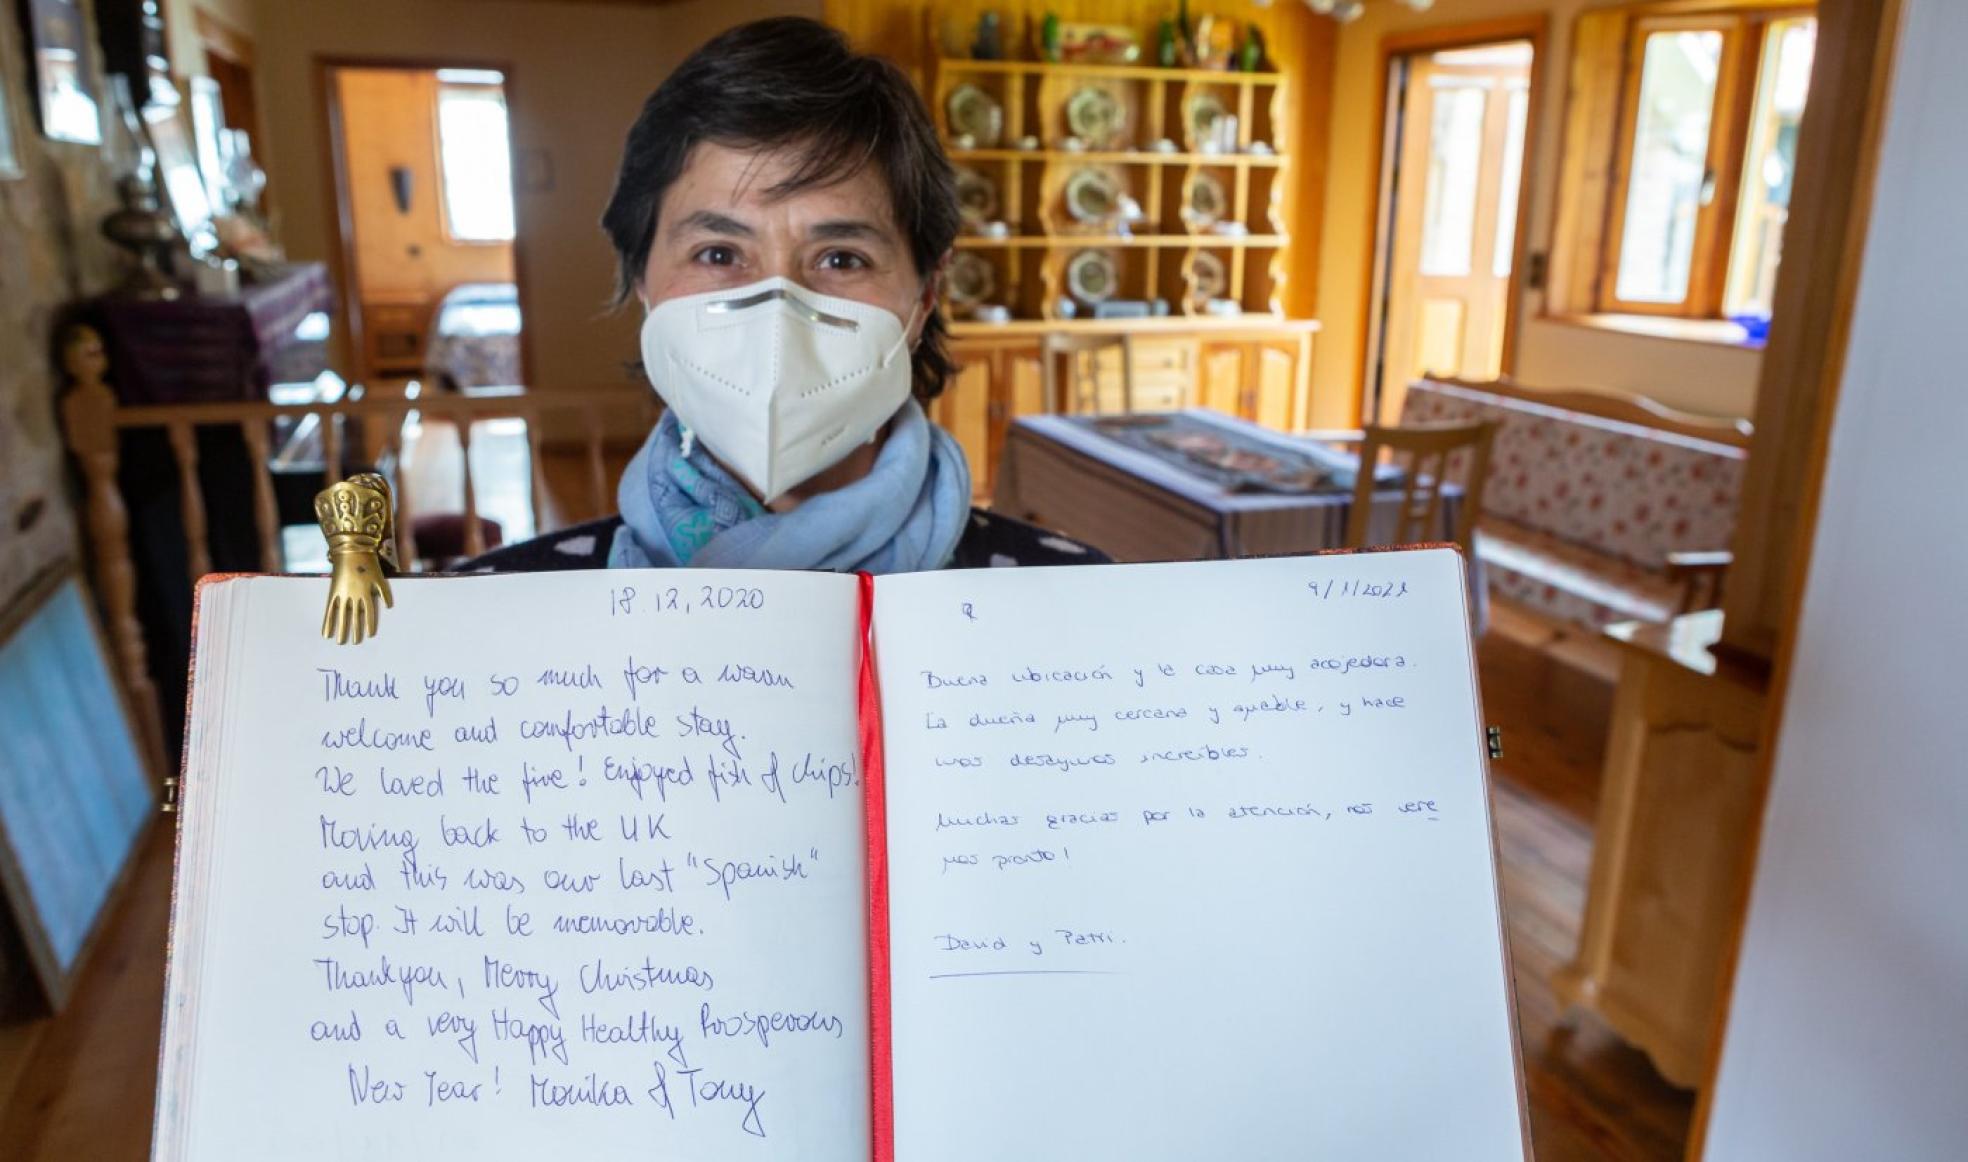 18.12,2020
Thank you so much for a warm
welcome and comfortable stay.
We loved the fire! Enjoyed fish & chips!
Moving back to the UK
and this was our last "Spanish"
stop. It will be memorable.
Thankyou, Merry Christmas
and a very Happy Healthy Prosperous
New Year! Monika & Tony
9/1/2021
Buena ubicación y la casa muy acojedora.
La dueña muy cercana y amable, y hace
unos desayunos increíbles.
Muchas gracias por la atención, nos vere
mos pronto!
David y Patri.